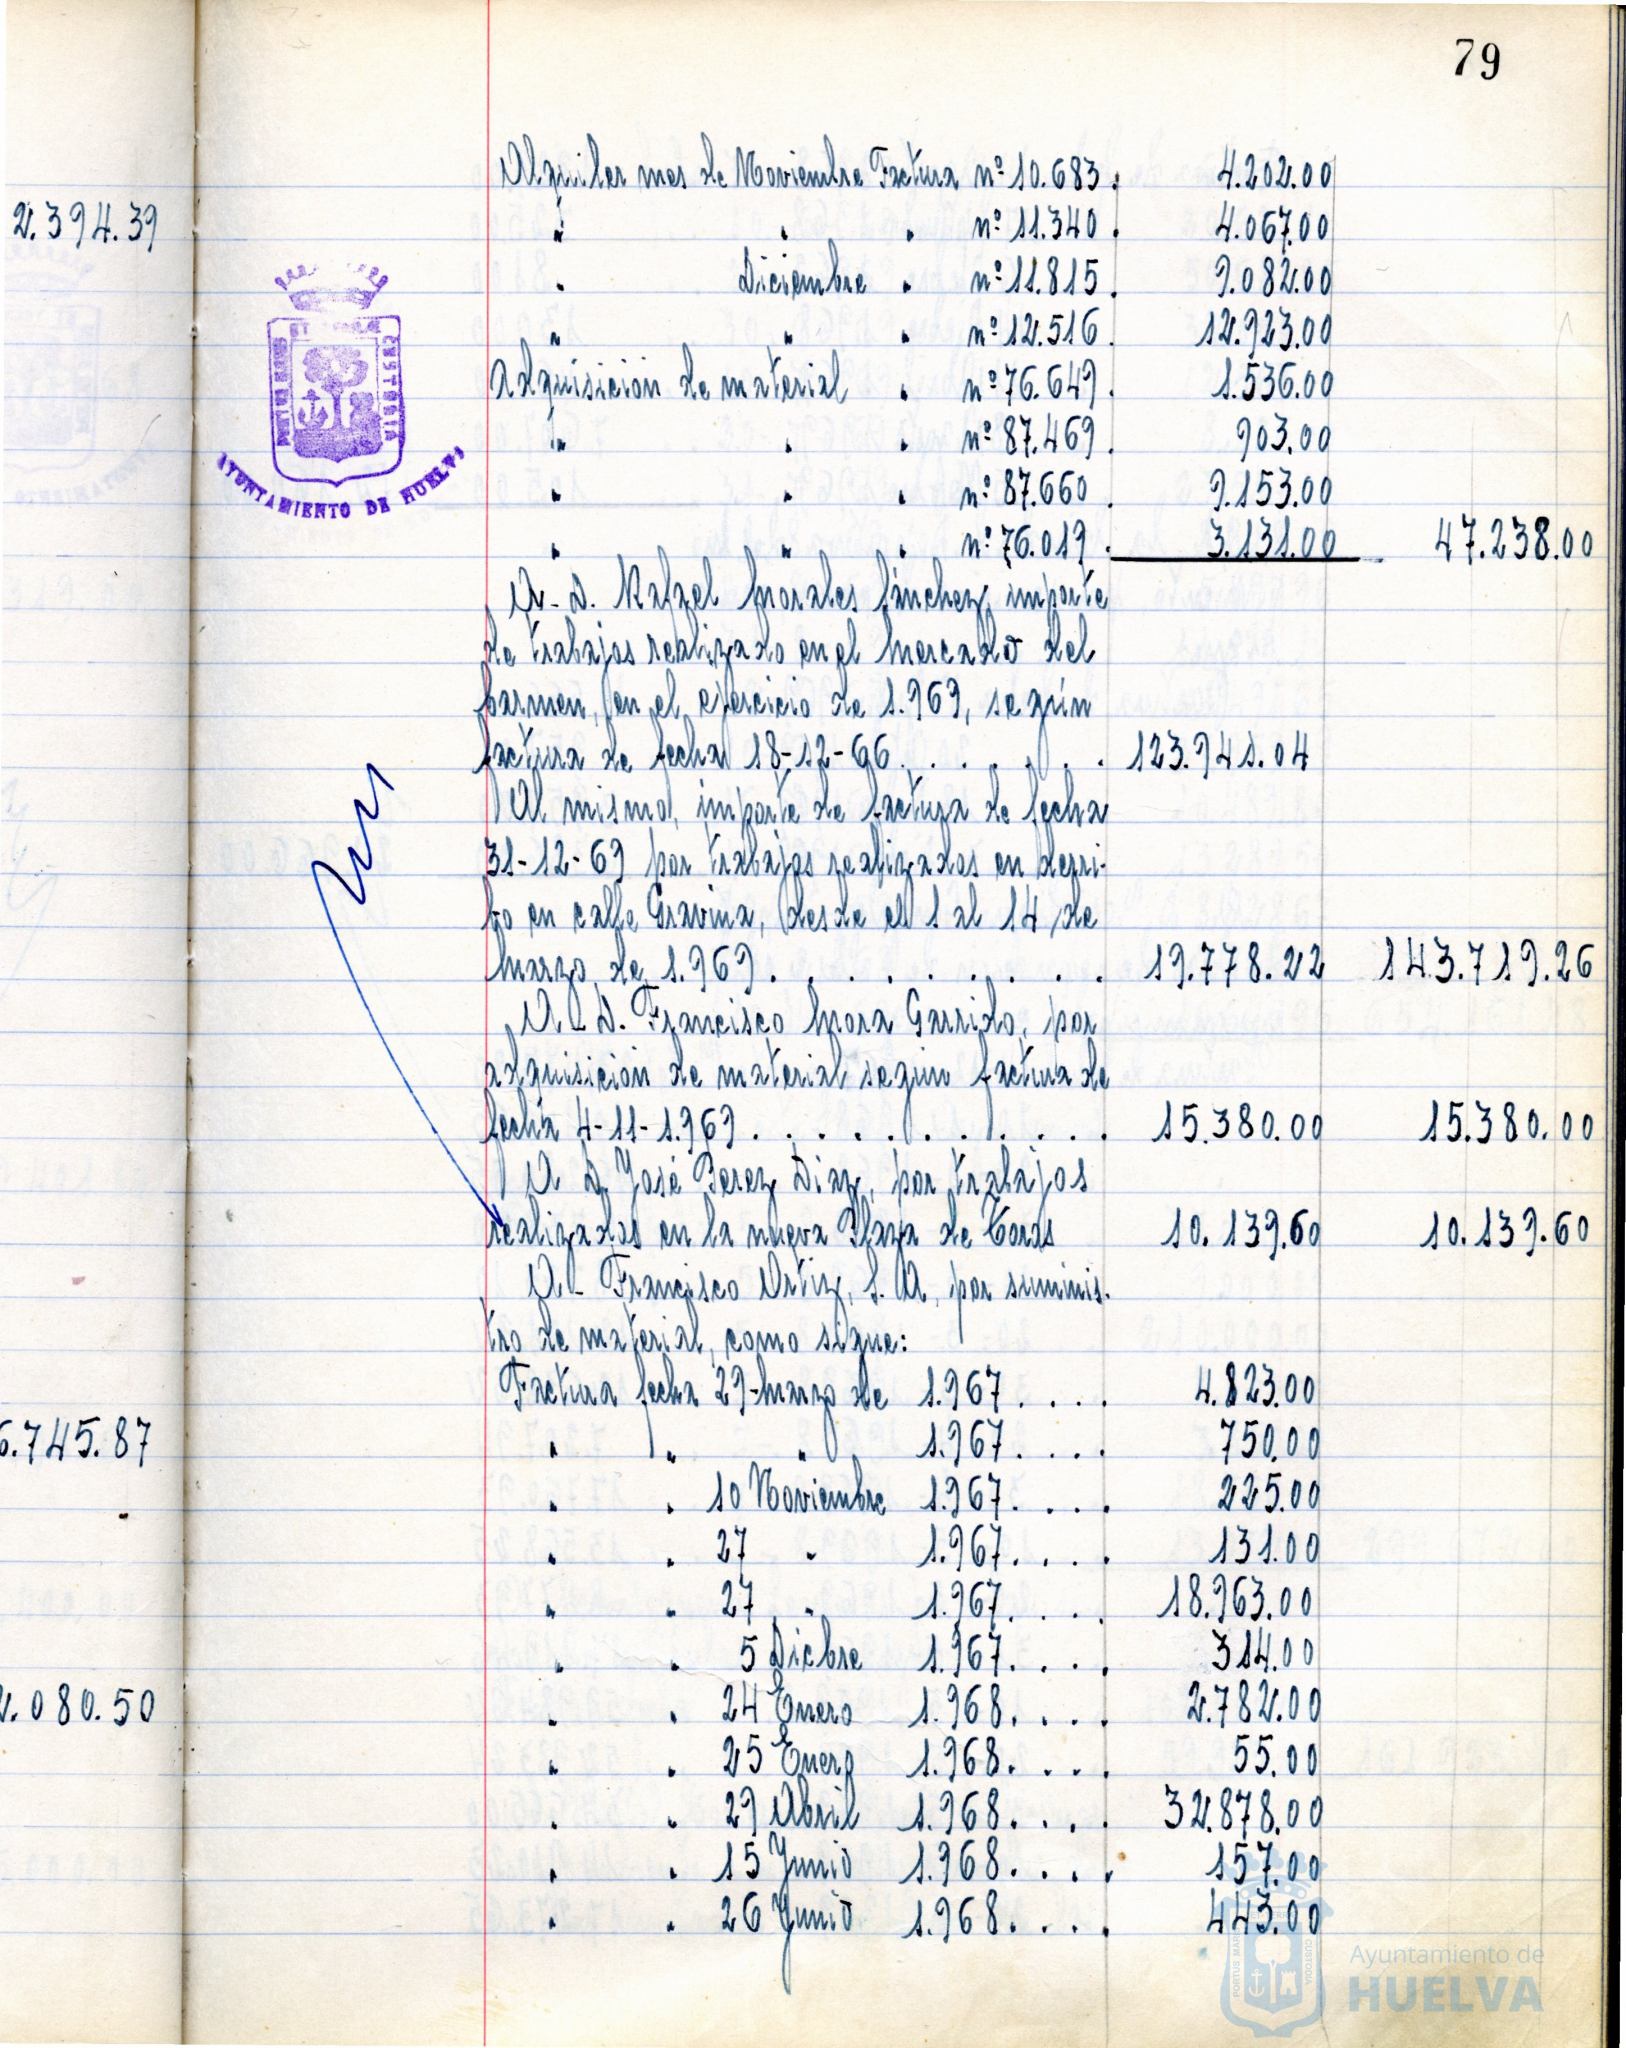 79
2.394.39
6.745.87
2.080.50
AYUNTAMIENTO DE HUELVA
Alquiler mes de Noviembre Factura nº 10.683. 4.202.00
" " " nº 11.340. 4.067.00
" Diciembre " nº 11.815. 9.082.00
" " " nº 12.516. 12.923.00
Adquisición de material " nº 76.649. 1.536.00
" " " nº 87.469. 903.00
" " " nº 87.660. 9.153.00
" " " nº 76.019. 3.131.00 47.238.00
A - D. Rafael Morales Sánchez, importe
de trabajos realizado en el Mercado del
Carmen, en el ejercicio de 1.969, según
factura de fecha 18-12-66. . . . . . 123.941.04
Al mismo, importe de factura de fecha
31-12-69 por trabajos realizados en derri-
bo en calle Gravina, desde el 1 al 14 de
Marzo de 1.969. . . . . . . . 19.778.22 143.719.26
A - D. Francisco Mora Garrido, por
adquisición de material según factura de
fecha 4-11-1.969. . . . . . . . 15.380.00 15.380.00
A D. José Perez Diaz, por trabajos
realizados en la nueva Plaza de Toros 10.139.60 10.139.60
A - Francisco Ortiz, S. A, por suminis-
tro de material, como sigue:
Factura fecha 29-Marzo de 1.967. . . . 4.823.00
" " " 1.967. . . . 750.00
" " 10 Noviembre 1.967. . . . 225.00
" " 27 " 1.967. . . . 131.00
" " 27 " 1.967. . . . 18.963.00
" " 5 Dicbre 1.967. . . . 314.00
" " 24 Enero 1.968. . . . 2.782.00
" " 25 Enero 1.968. . . . 55.00
" " 29 Abril 1.968. . . . 32.878.00
" " 15 Junio 1.968. . . . 157.00
" " 26 Junio 1.968. . . . 443.00
Ayuntamiento de
HUELVA